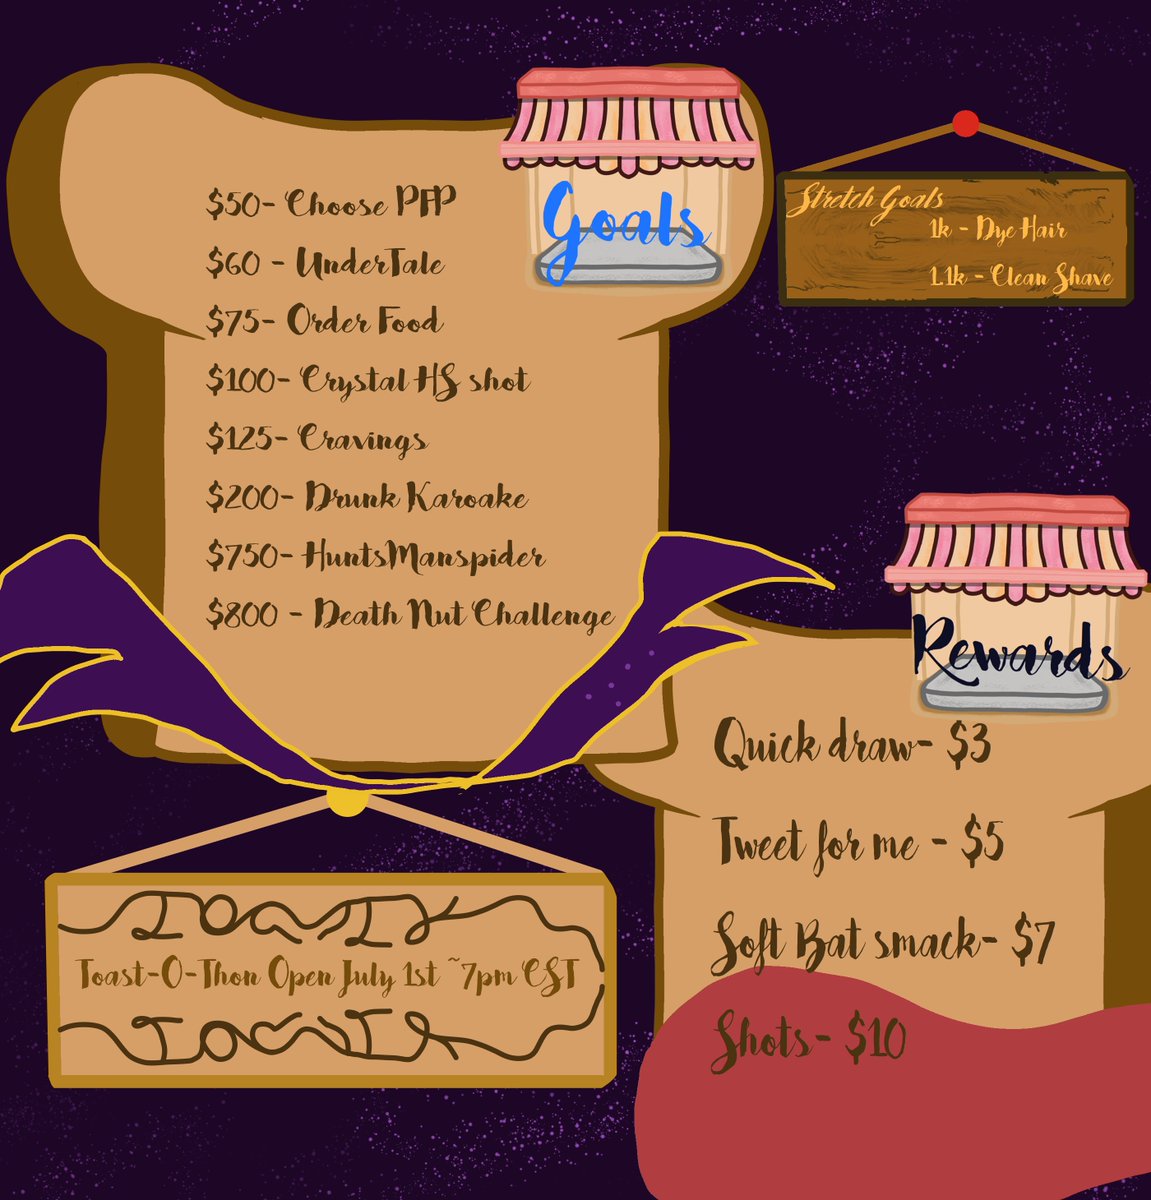 Goals
$50- Choose PFP
$60 - UnderTale
$75- Order Food
$100- Crystal HS shot
$125- Cravings
$200- Drunk Karoake
$750- HuntsManspider
$800 - Death Nut Challenge
Stretch Goals
1k - Dye Hair
1.1k - Clean Shave
Rewards
Quick draw- $3
Tweet for me - $5
Soft Bat smack- $7
Shots- $10
Toast-O-Thon Open July 1st ~7pm CST